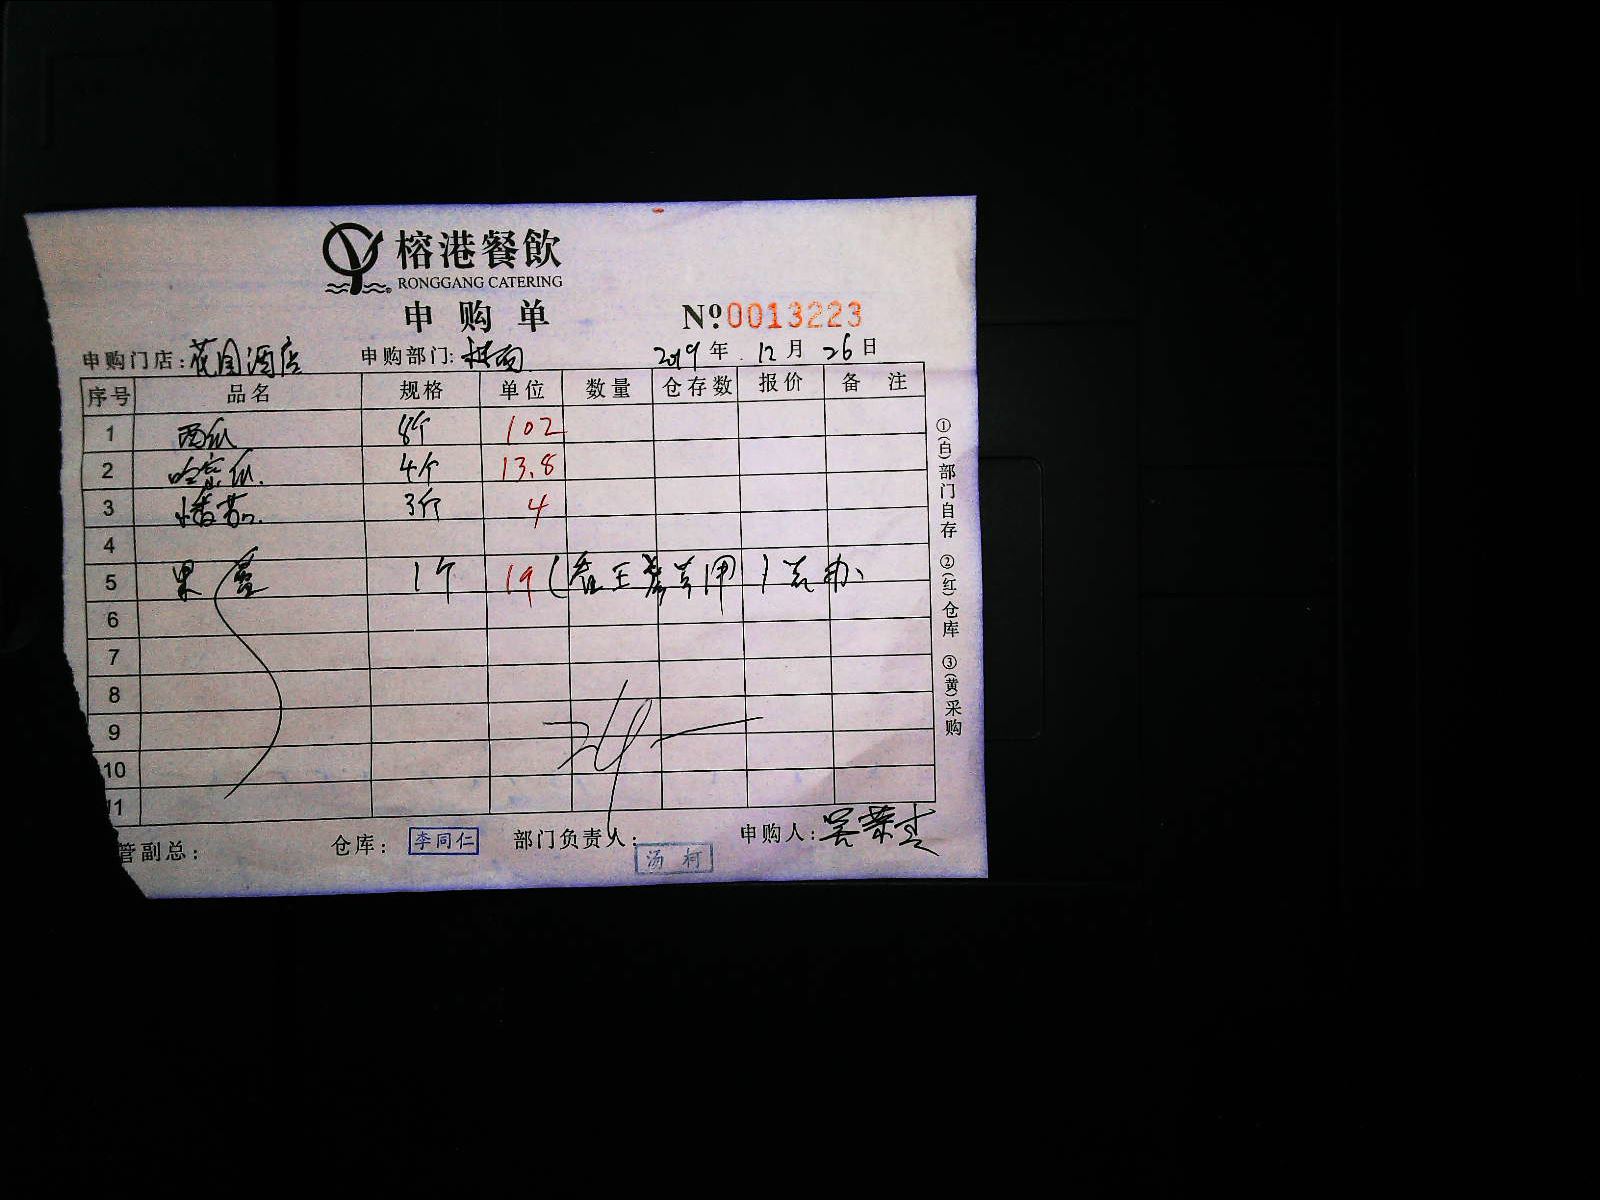 榕港餐飲
RONGGANG CATERING
申购单 №0013223
申购门店：花园酒店 申购部门：楼面 2019年12月26日
序号 品名 规格 单位 数量 仓存数 报价 备注
1 西瓜 8个 102
2 哈密瓜 4个 13.8
3 小番茄 3斤 4
4
5 果篮 1个 19
6
7
8
9
10
11
管副总： 仓库：李同仁 部门负责人：汤柯 申购人：
①(白)部门自存 ②(红)仓库 ③(黄)采购